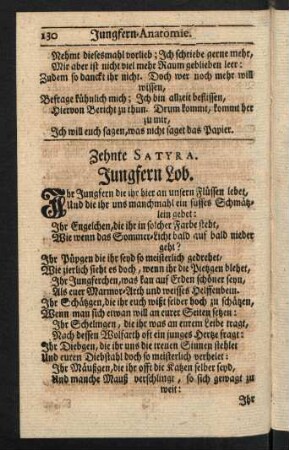 130 Jungfern-Anatomie.
Nehmt diesesmahl vorlieb; Ich schriebe gerne mehr,
Mir aber ist nicht viel mehr Raum geblieben leer:
Zudem so danckt ihr nicht. Doch wer noch mehr will
wissen,
Befrage kühnlich mich; Ich bin allzeit beflissen,
Hiervon Bericht zu thun. Drum kommt, kommt her
zu mir,
Ich will euch sagen, was nicht saget das Papier.
Zehnte SATYRA.
Jungfern Lob.
Ihr Jungfern die ihr hier an unsern Flüssen lebet,
Und die ihr uns manchmahl ein süsses Schmätz-
lein gebet:
Ihr Engelchen, die ihr in solcher Farbe steht,
Wie wenn das Sommer-Licht bald auf bald nieder
geht?
Ihr Püpgen die ihr seyd so meisterlich gedrehet;
Wie zierlich sieht es doch, wenn ihr die Pietzgen blehet,
Ihr Jungferchen, was kan auf Erden schöner seyn,
Als euer Marmor-Arsch und weisses Helffenbein.
Ihr Schätzgen, die ihr euch wißt selber hoch zu schätzen,
Wenn man sich etwan will an eurer Seiten setzen:
Ihr Schelmgen, die ihr was an eurem Leibe tragt,
Nach dessen Wolfarth oft ein junges Hertze fragt:
Ihr Diebgen, die ihr uns die treuen Sinnen stehlet
Und euren Diebstahl doch so meisterlich verheiet:
Ihr Mäußgen, die ihr offt die Katzen selber seyd,
Und manche Mauß verschlingt, so sich gewagt zu
weit:
Ihr